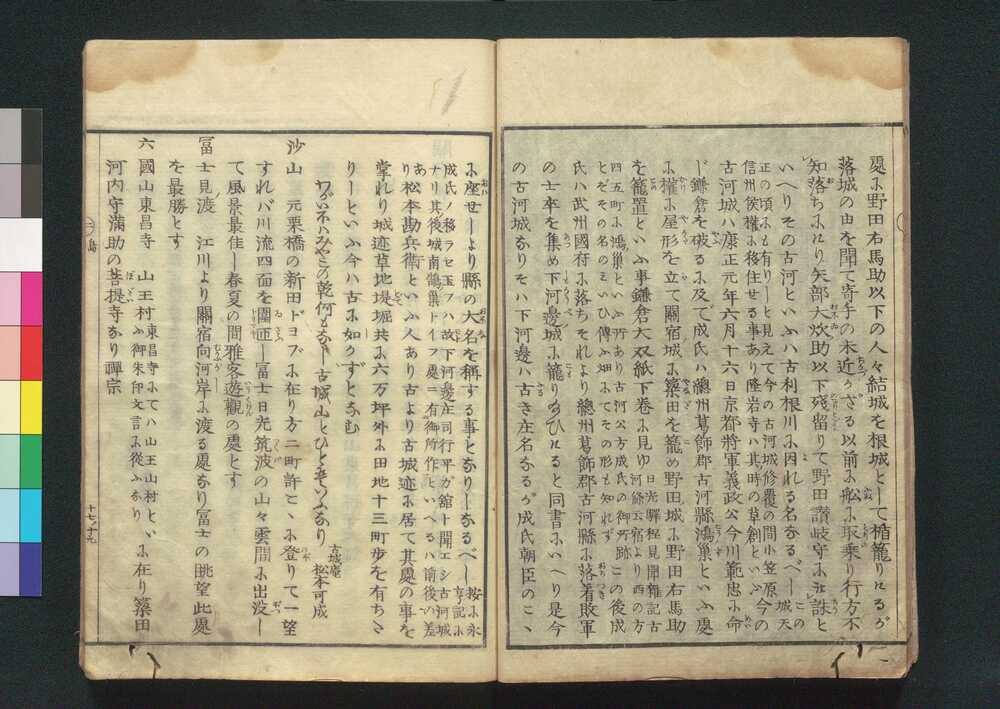 處に野田右馬助以下の人々結城を根城として楯籠りけるが
落城の由を聞て寄手の未近かざる以前に舩に取乗り行方不
知落ちにけり矢部大炊助以下殘留りて野田讃岐守に被誅と
いへりその古河といふハ古利根川に因れる名なるべし城天
正の頃にも有りしと見えて今の古河城修覆の間小笠原今の
信州侯權に移住せる事あり隆岩寺ハ其時の草創といふ
古河城ハ康正元年六月十六日京都將軍義政公今川範忠に命
じ鎌倉を破るに及て成氏ハ總州葛飾郡古河縣鴻巣といふ處
に權に屋形を立て關宿城に簗田を籠め野田城に野田右馬助
を籠置といふ事鎌倉大双紙下卷に見ゆ日光驛程見聞雜記古
河鯨云宿より西の方
四五町に鴻巣といふ所あり古河公方成氏の御所跡この後成
とぞその名のミいひ傳ふ畑にてその形も知れず
氏ハ武州國府に落ちそれより總州葛飾郡古河縣に落着敗軍
の士卒を集め下河邊城に籠り給ひけると同書にいへり是今
の古河城なりそハ下河邊ハ古き庄名なるが成氏朝臣のこゝ
に座せしより縣の大名を稱する事となりしなるべし按に永
享記に
成氏ノ移ラセ玉フハ故下河邊庄司行平ガ舘ト聞エシ古河城
ナリ其後城南鴻巣トイフ處ニ有御所作といへるハ前後の差
あり松本勘兵衛といふ人あり古より古城迹に居て其處の事を
掌れり城迹草地堤堀共に六万坪外に田地十三町歩を有ちさ
りしといふ今ハ古に如かずとなむ
わがいほハみやこの乾何もなき古城山とひともいふなり
古城庵
松本可成
沙山 元栗橋の新田ドヨブに在り方二町許こゝに登りて一望
すれバ川流四面を圍匝し冨士日光筑波の山々雲間に出没し
て風景最佳し春夏の間雅客遊觀の處とす
冨士見渡 江川より關宿向河岸に渡る處なり冨士の眺望此處
を最勝とす
六國山東昌寺 山王村東昌寺にてハ山王山村といふ御朱印文言に從ふなりに在り簗田
河内守滿助の菩提寺なり禪宗
島
十七ノ十九